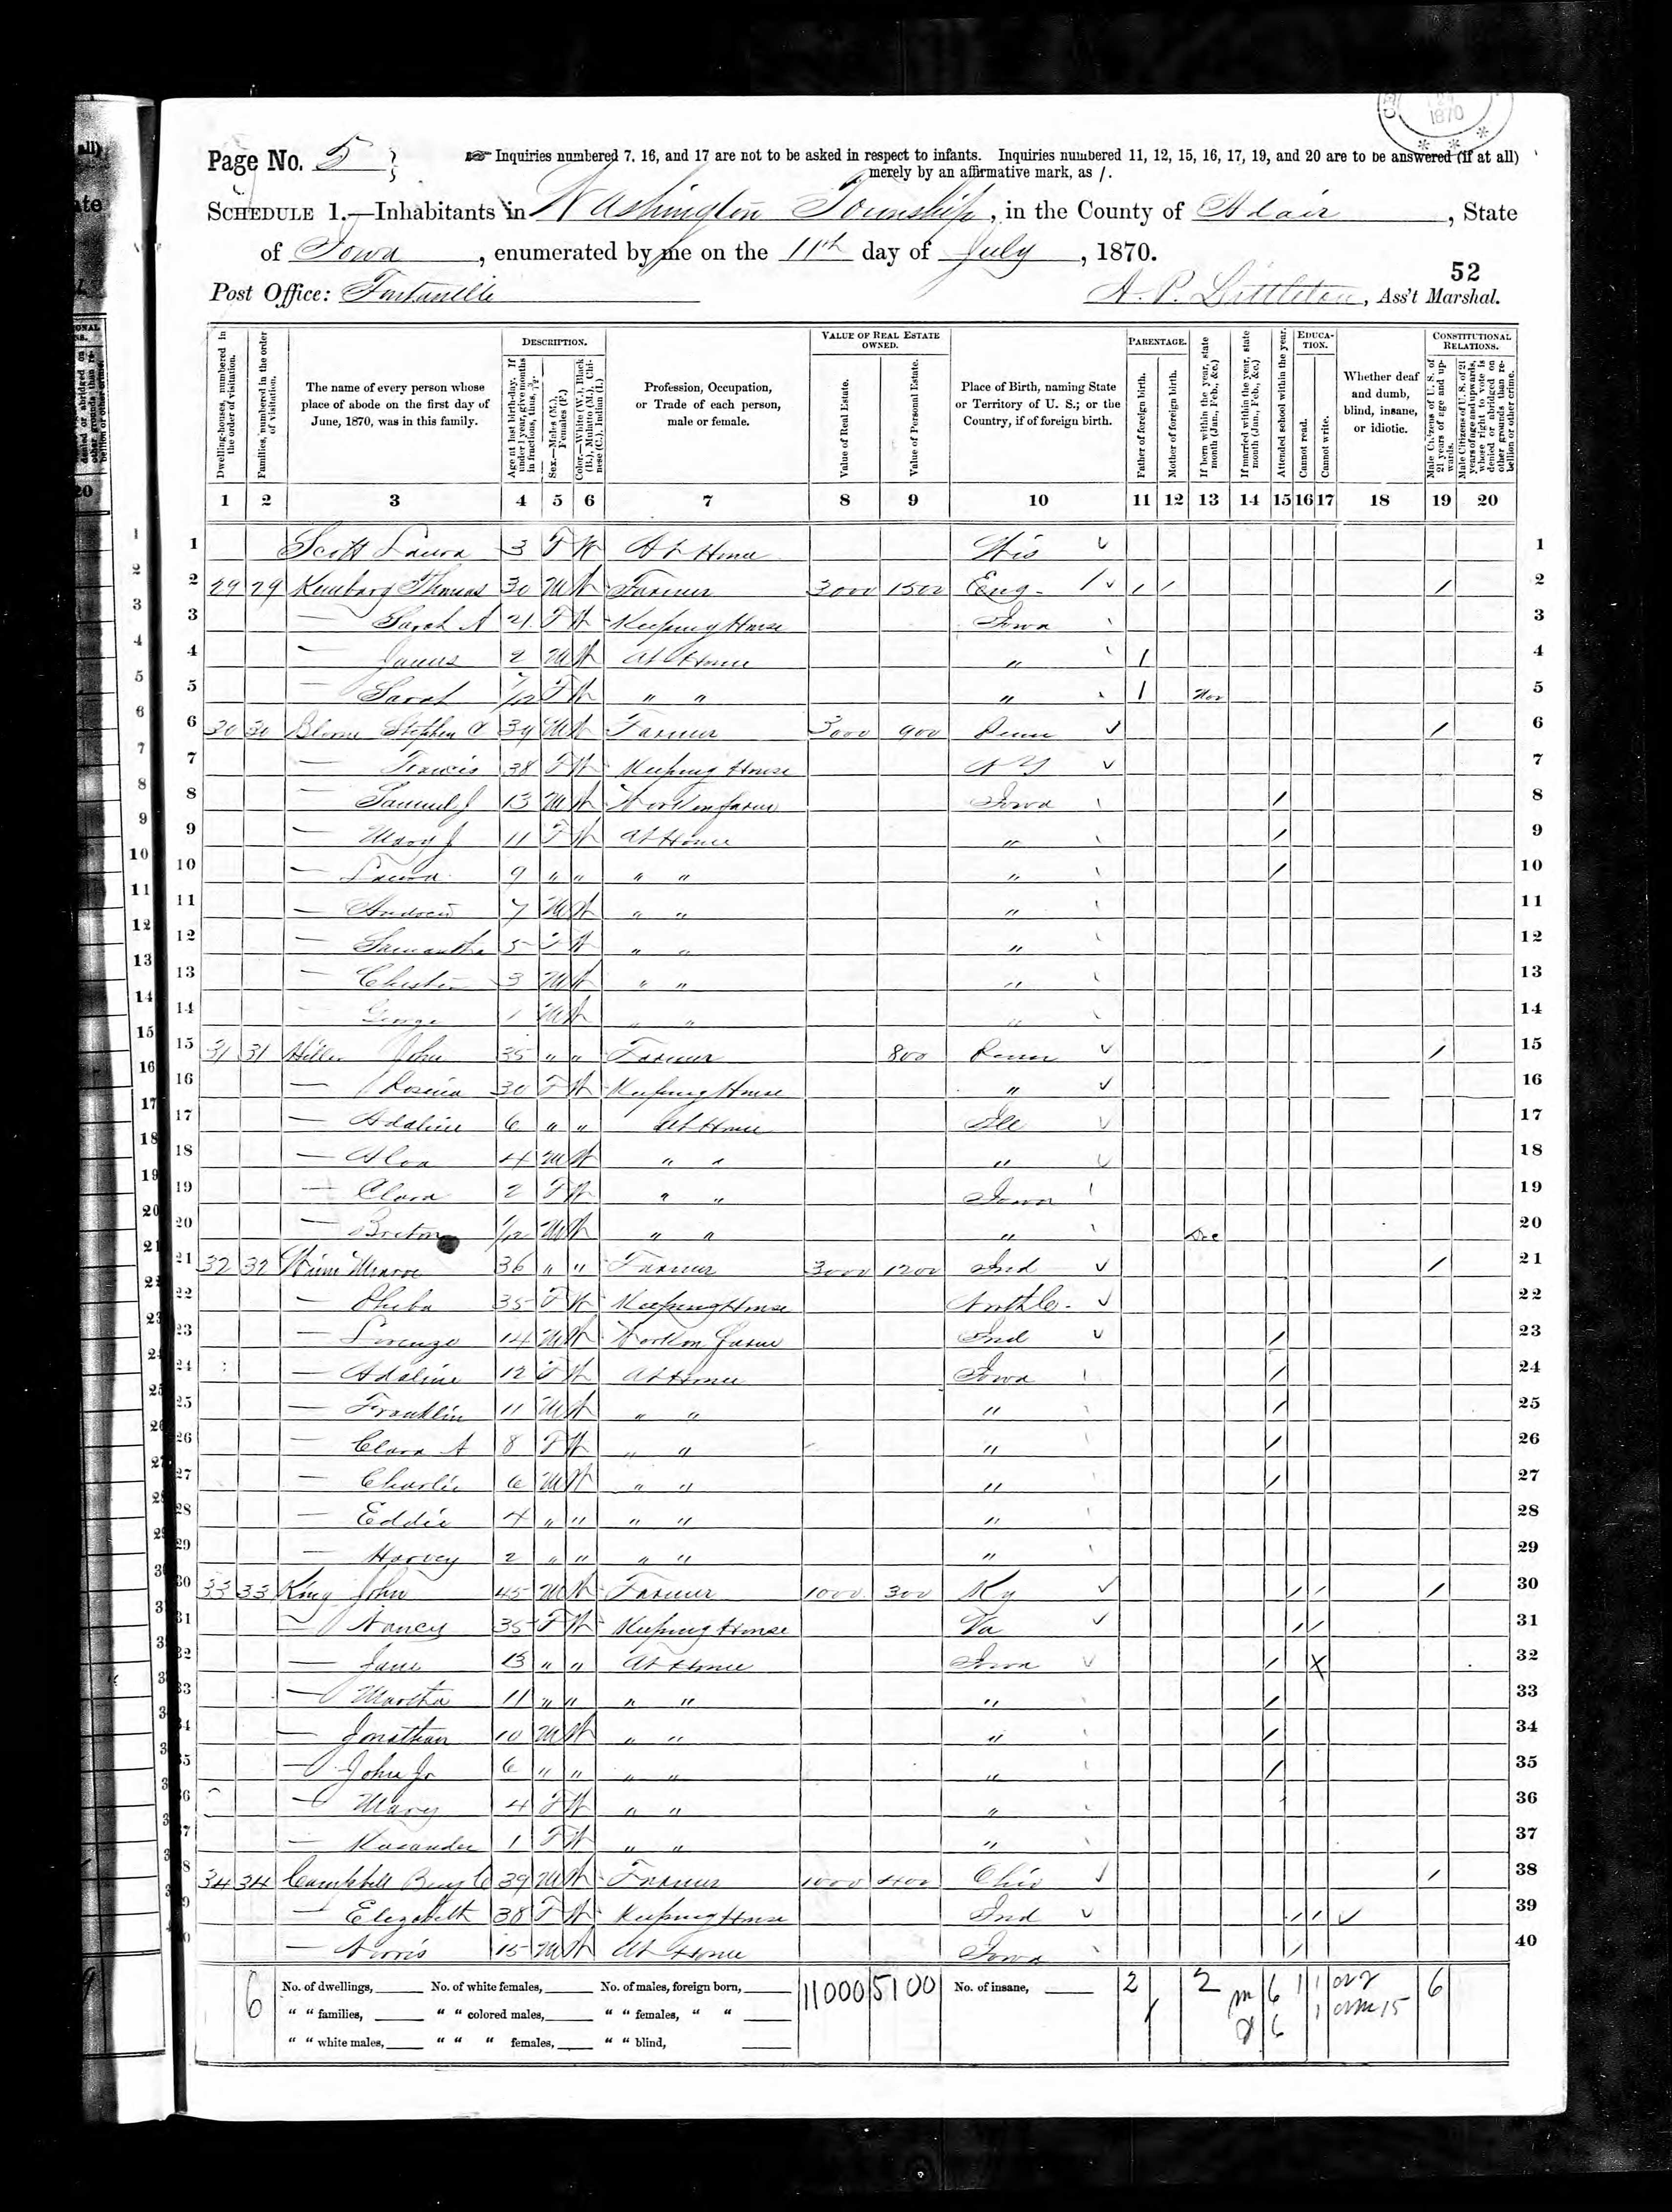 1870
Page No. 5
Inquiries numbered 7, 16, and 17 are not to be asked in respect to infants. Inquiries numbered 11, 12, 15, 16, 17, 19, and 20 are to be answered (if at all)
merely by an affirmative mark, as /.
SCHEDULE 1.—Inhabitants in Washington Township, in the County of Adair, State
of Iowa, enumerated by me on the 11th day of July, 1870.
52
Post Office: Fontanelle A. P. Littleton, Ass't Marshal.
Dwelling-houses, numbered in the order of visitation.
Families, numbered in the order of visitation.
The name of every person whose place of abode on the first day of June, 1870, was in this family.
DESCRIPTION.
Age at last birth-day. If under 1 year, give months in fractions, thus, 3/12.
Sex.—Males (M.), Females (F.)
Color.—White (W.), Black (B.), Mulatto (M.), Chinese (C.), Indian (I.)
Profession, Occupation, or Trade of each person, male or female.
VALUE OF REAL ESTATE OWNED.
Value of Real Estate.
Value of Personal Estate.
Place of Birth, naming State or Territory of U. S.; or the Country, if of foreign birth.
PARENTAGE.
Father of foreign birth.
Mother of foreign birth.
If born within the year, state month (Jan., Feb., &c.)
If married within the year, state month (Jan., Feb., &c.)
Attended school within the year.
EDUCATION.
Cannot read.
Cannot write.
Whether deaf and dumb, blind, insane, or idiotic.
CONSTITUTIONAL RELATIONS.
Male Citizens of U. S. of 21 years of age and upwards.
Male Citizens of U. S. of 21 years of age and upwards, whose right to vote is denied or abridged on other grounds than rebellion or other crime.
1 2 3 4 5 6 7 8 9 10 11 12 13 14 15 16 17 18 19 20
1 Scott Laura 3 F W At Home Wis ✓ 1
2 29 29 Thomas 30 M W Farmer 3000 1500 Eng / ✓ / / / 2
3 — Sarah A 21 F W Keeping House Iowa 3
4 — James 2 M W At Home " / 4
5 — Sarah 7/12 F W " " " / Nov 5
6 30 30 Stephen A 39 M W Farmer 3000 900 Penn ✓ / 6
7 — Francis 38 F W Keeping House N Y ✓ 7
8 — Samuel J 13 M W Work on farm Iowa / 8
9 — Mary J 11 F W At Home " / 9
10 — Laura 9 " " " " " / 10
11 — Andrew 7 M W " " " 11
12 — Samantha 5 F W " " " 12
13 — 3 M W " " " 13
14 — George 1 M W " " " 14
15 31 31 John 35 " " Farmer 800 Penn ✓ / 15
16 — Rosina 30 F W Keeping House " ✓ 16
17 — Adaline 6 " " At Home Ill ✓ 17
18 — Alva 4 M W " " " ✓ 18
19 — Clara 2 F W " " Iowa 19
20 — /12 M W " " " Dec 20
21 32 32 Monroe 36 " " Farmer 3000 1200 Ind ✓ / 21
22 — Pheba 35 F W Keeping House North Ca. ✓ 22
23 — Lorenzo 14 M W Work on farm Ind ✓ / 23
24 — Adaline 12 F W At Home Iowa / 24
25 — Franklin 11 M W " " " / 25
26 — Clara A 8 F W " " " / 26
27 — Charlie 6 M W " " " / 27
28 — Eddie 4 " " " " " 28
29 — Harvey 2 " " " " " 29
30 33 33 King John 45 M W Farmer 1000 300 Ky ✓ / / / 30
31 — Nancy 35 F W Keeping House Va ✓ / / 31
32 — Jane 13 " " At Home Iowa ✓ / X 32
33 — Martha 11 " " " " " / 33
34 — Jonathan 10 M W " " " / 34
35 — John Jr 6 " " " " " / 35
36 — Mary 4 F W " " " 36
37 — 1 F W " " " 37
38 34 34 Campbell Benj C 39 M W Farmer 1000 400 Ohio ✓ / 38
39 — Elizabeth 38 F W Keeping House Ind ✓ / / ✓ 39
40 — Norris 15 M W At Home Iowa / 40
6 No. of dwellings, No. of white females, No. of males, foreign born, 11000 5100 No. of insane, 2 / 2 m 6 1 1 6
" " families, " " colored males, " " females, " "
" " white males, " " " females, " " blind, 6